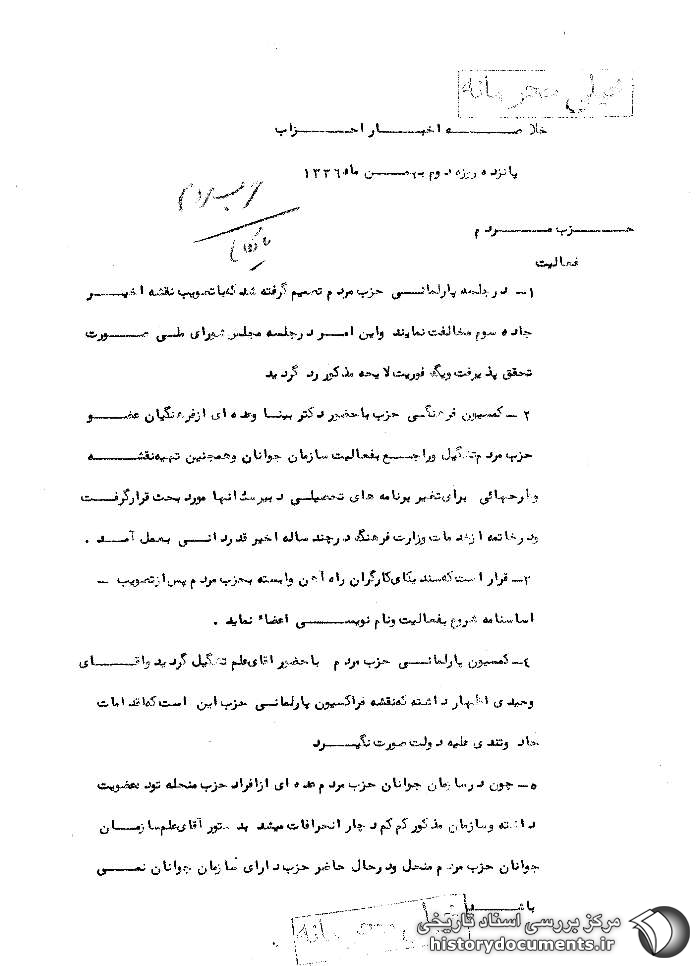 خیلی محرمانه
خلاصه اخبار احزاب
پانزده روزه دوم بهمن ماه ۱۳۳۶
حزب مردم
فعالیت
۱ــ در جلسه پارلمانی حزب مردم تصمیم گرفته شد که با تصویب نقشه اخیر
جاده سوم مخالفت نمایند واین امر در جلسه مجلس شورای ملی صورت
تحقق پذیرفت ویک فوریت لایحه مذکور رد گردید
۲ــ کمسیون فرهنگی حزب با حضور دکتر بینا وعده ای از فرهنگیان عضو
حزب مردم تشکیل وراجع بفعالیت سازمان جوانان وهمچنین تهیه نقشه
وطرحهائی برای تغیر برنامه های تحصیلی دبیرستانها مورد بحث قرار گرفت
ودر خاتمه از خدمات وزارت فرهنگ در چند ساله اخیر قدردانی بعمل آمد .
۳ــ قرار است که سندیکای کارگران راه آهن وابسته بحزب مردم پس از تصویب ــ
اساسنامه شروع بفعالیت ونام نویسی اعضاء نماید .
٤ــ کمسیون پارلمانی حزب مردم با حضور اقای علم تشکیل گردید واقای
وحیدی اظهار داشته که نقشه فراکسیون پارلمانی حزب این است که اقدامات
حاد وتندی علیه دولت صورت نگیرد
٥ــ چون در سازمان جوانان حزب مردم عده ای از افراد حزب منحله توده عضویت
داشته وسازمان مذکور کم کم دچار انحرافات میشد بدستور آقای علم سازمان
جوانان حزب مردم منحل ودر حال حاضر حزب دارای سازمان جوانان نمی
باشد
خیلی محرمانه
مرکز بررسی اسناد تاریخی
historydocuments.ir